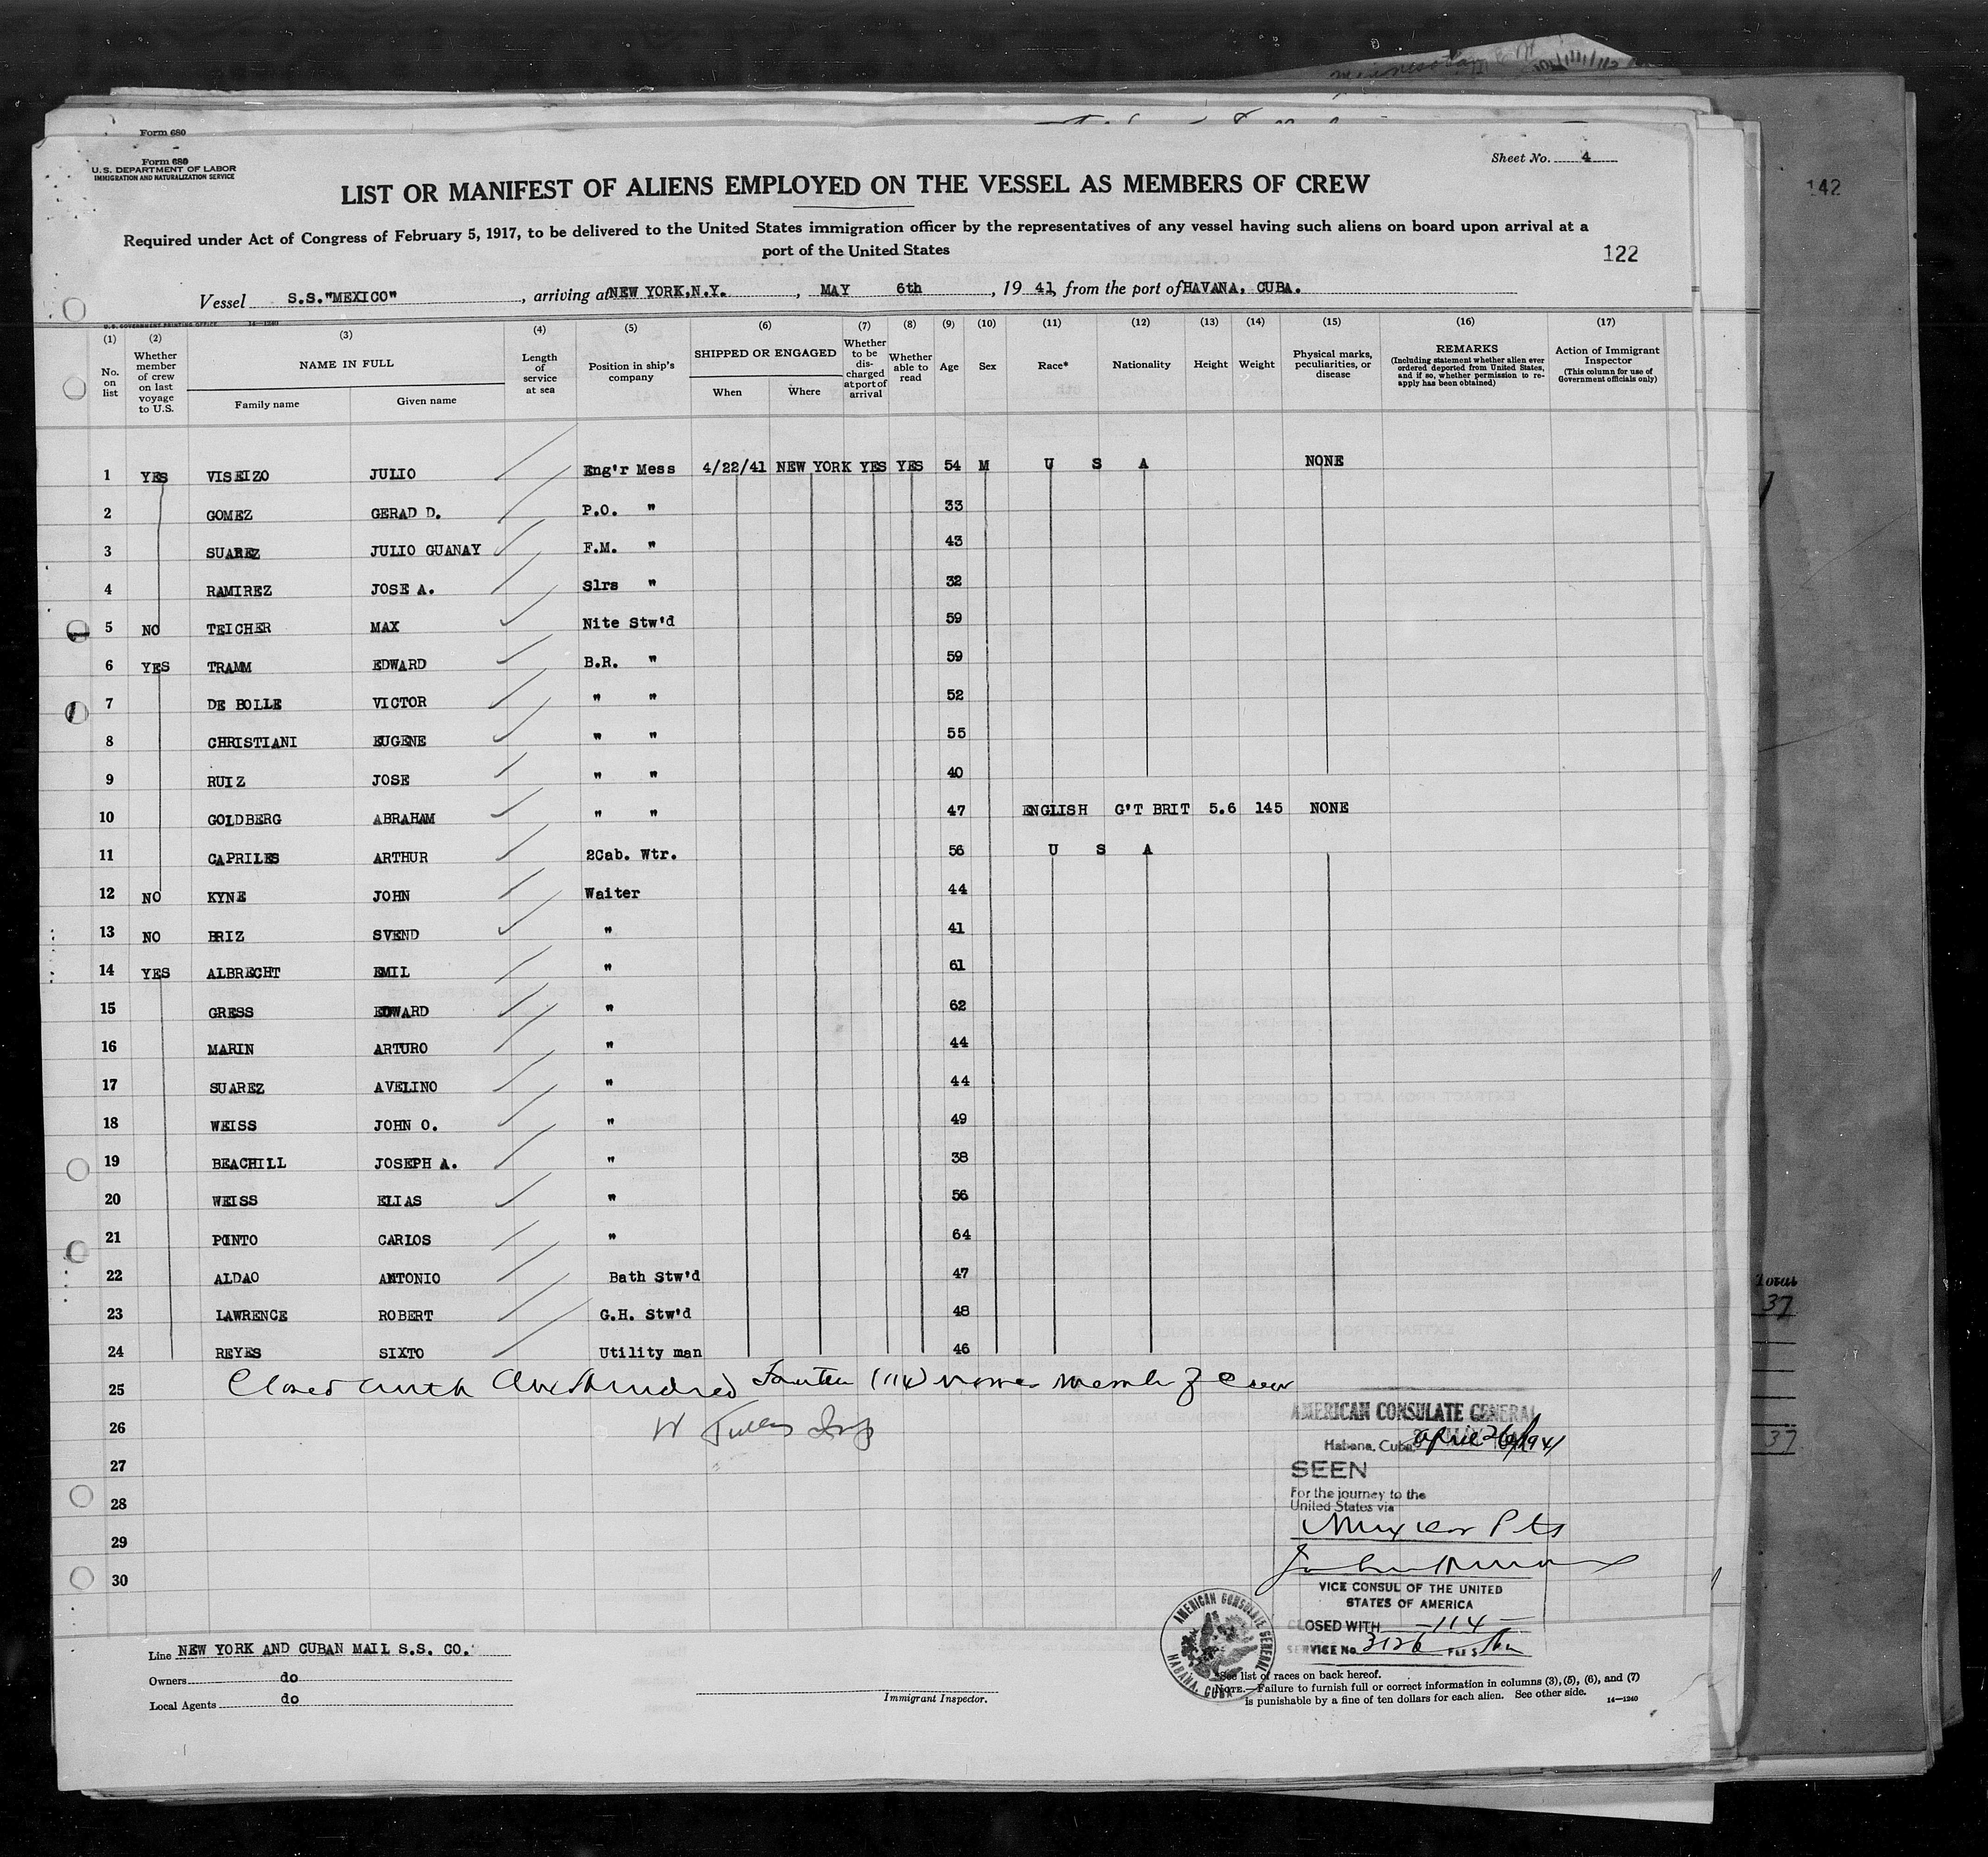 Form 680
Form 680
U. S. DEPARTMENT OF LABOR
IMMIGRATION AND NATURALIZATION SERVICE
Sheet No. 4
142
LIST OR MANIFEST OF ALIENS EMPLOYED ON THE VESSEL AS MEMBERS OF CREW
Required under Act of Congress of February 5, 1917, to be delivered to the United States immigration officer by the representatives of any vessel having such aliens on board upon arrival at a
port of the United States
122
Vessel S.S."MEXICO", arriving at NEW YORK,N.Y., MAY 6th, 19 41, from the port of HAVANA, CUBA.
U.S. GOVERNMENT PRINTING OFFICE 14—1240
(1) (2) (3) (4) (5) (6) (7) (8) (9) (10) (11) (12) (13) (14) (15) (16) (17)
No. on list
Whether member of crew on last voyage to U.S.
NAME IN FULL
Family name Given name
Length of service at sea
Position in ship's company
SHIPPED OR ENGAGED
When Where
Whether to be discharged at port of arrival
Whether able to read
Age
Sex
Race*
Nationality
Height
Weight
Physical marks, peculiarities, or disease
REMARKS
(Including statement whether alien ever ordered deported from United States, and if so, whether permission to reapply has been obtained)
Action of Immigrant Inspector
(This column for use of Government officials only)
1 YES VISEIZO JULIO Eng'r Mess 4/22/41 NEW YORK YES YES 54 M U S A NONE
2 GOMEZ GERAD D. P.O. " 33
3 SUAREZ JULIO GUANAY F.M. " 43
4 RAMIREZ JOSE A. Slrs " 32
5 NO TEICHER MAX Nite Stw'd 59
6 YES TRAMM EDWARD B.R. " 59
7 DE BOLLE VICTOR " " 52
8 CHRISTIANI EUGENE " " 55
9 RUIZ JOSE " " 40
10 GOLDBERG ABRAHAM " " 47 ENGLISH G'T BRIT 5.6 145 NONE
11 CAPRILES ARTHUR 2Cab. Wtr. 56 U S A
12 NO KYNE JOHN Waiter 44
13 NO BRIZ SVEND " 41
14 YES ALBRECHT EMIL " 61
15 GRESS EDWARD " 62
16 MARIN ARTURO " 44
17 SUAREZ AVELINO " 44
18 WEISS JOHN O. " 49
19 BEACHILL JOSEPH A. " 38
20 WEISS ELIAS " 56
21 PINTO CARLOS " 64
22 ALDAO ANTONIO Bath Stw'd 47
23 LAWRENCE ROBERT G.H. Stw'd 48
24 REYES SIXTO Utility man 46
25 Closed with One Hundred Fourteen (114) names members of crew
26
27
28
29
30
AMERICAN CONSULATE GENERAL
Habana, Cuba, april 26/1941
SEEN
For the journey to the
United States via
Mexican Pts
VICE CONSUL OF THE UNITED
STATES OF AMERICA
CLOSED WITH —114—
SERVICE No. 3126 FEE $
AMERICAN CONSULATE GENERAL
HABANA, CUBA
Total
37
37
Line NEW YORK AND CUBAN MAIL S.S. CO.
Owners do
Local Agents do
Immigrant Inspector.
*See list of races on back hereof.
NOTE.—Failure to furnish full or correct information in columns (3), (5), (6), and (7)
is punishable by a fine of ten dollars for each alien. See other side. 14—1240